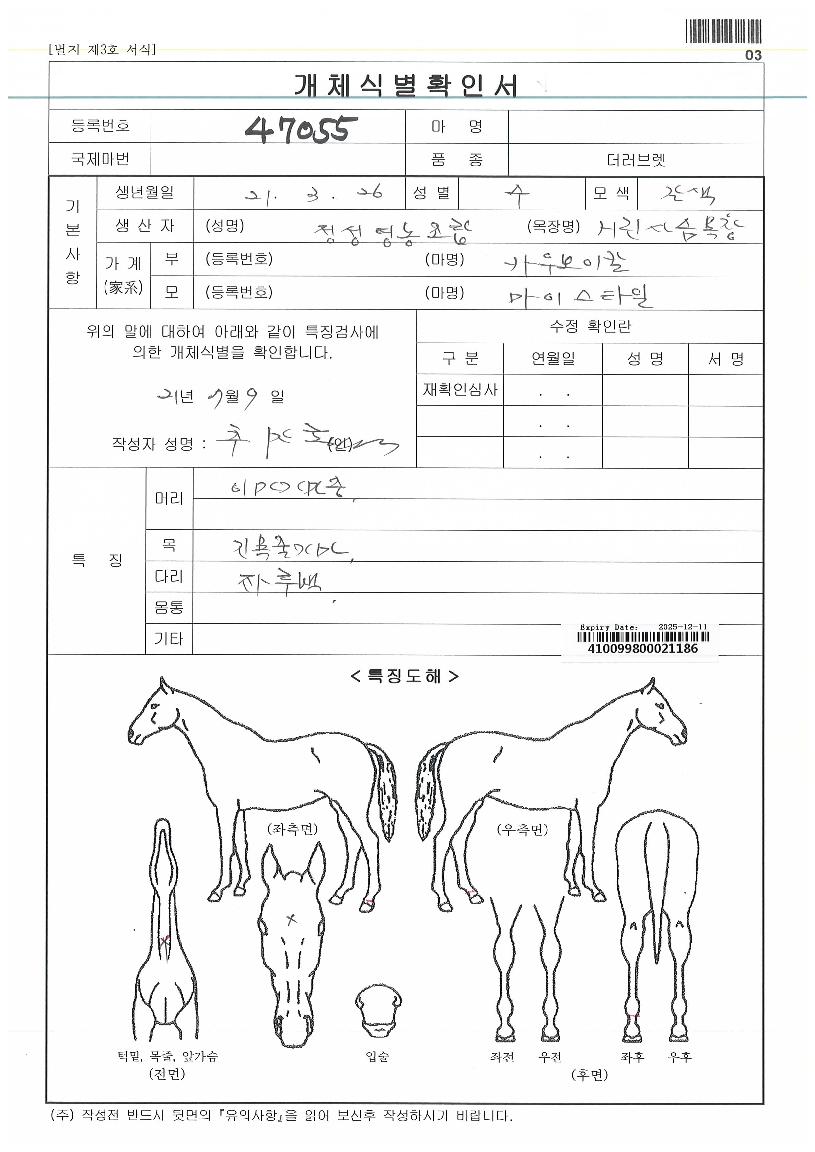 [별지 제3호 서식]
03
개체식별확인서
등록번호 47055 마 명
국제마번 품 종 더러브렛
기본사항
생년월일 21. 3. 26 성 별 수 모 색
생 산 자 (성명) 정성영농조합 (목장명)
가 계 (家系)
부 (등록번호) (마명) 카우보이칼
모 (등록번호) (마명) 마이스타일
위의 말에 대하여 아래와 같이 특징검사에
의한 개체식별을 확인합니다.
21년 7월 9일
작성자 성명 : (인)
수정 확인란
구 분 연월일 성 명 서 명
재확인심사 . .
. .
. .
특 징
머리
목
다리 좌후백
몸통
기타
Expiry Date: 2025-12-11
410099800021186
< 특징도해 >
(좌측면) (우측면)
턱밑, 목줄, 앞가슴
(전면)
입술
좌전 우전 좌후 우후
(후면)
(주) 작성전 반드시 뒷면의 『유의사항』을 읽어 보신후 작성하시기 바랍니다.